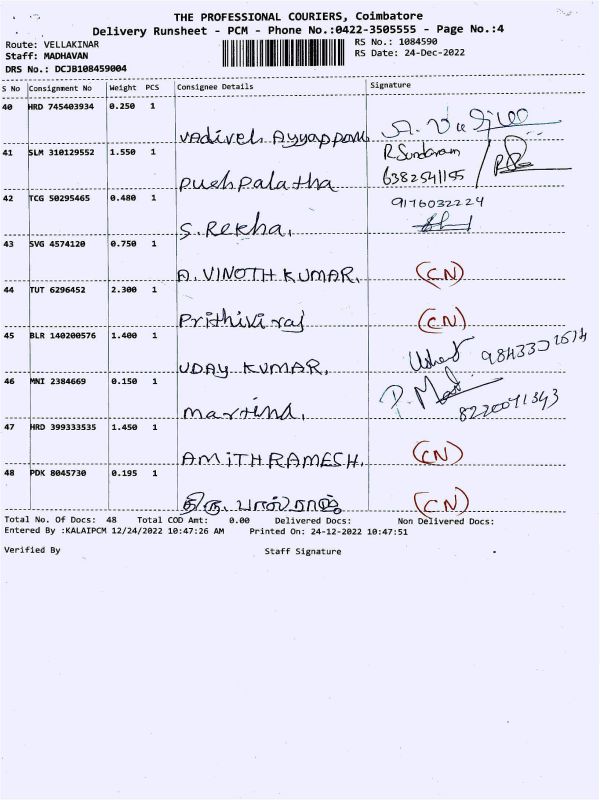 THE PROFESSIONAL COURIERS, Coimbatore
Delivery Runsheet - PCM - Phone No.:0422-3505555 - Page No.:4
Route: VELLAKINAR
RS No.: 1084590
Staff: MADHAVAN
RS Date: 24-Dec-2022
DRS No.: DCJB108459004
S No Consignment No Weight PCS Consignee Details Signature
40 HRD 745403934 0.250 1
Vadivel Ayyappan
41 SLM 310129552 1.550 1 R Sundaram
6382541155
Pushpalatha
42 TCG 50295465 0.480 1 9176032224
S. Rekha.
43 SVG 4574120 0.750 1
A. VINOTH KUMAR. (CN)
44 TUT 6296452 2.300 1
Prithivi raj (CN)
45 BLR 140200576 1.400 1
UDAY KUMAR.
46 MNI 2384669 0.150 1
8220071343
47 HRD 399333535 1.450 1
AMITH RAMESH. (CN)
48 PDK 8045730 0.195 1
திரு. (CN)
Total No. Of Docs: 48 Total COD Amt: 0.00 Delivered Docs: Non Delivered Docs:
Entered By :KALAIPCM 12/24/2022 10:47:26 AM Printed On: 24-12-2022 10:47:51
Verified By Staff Signature